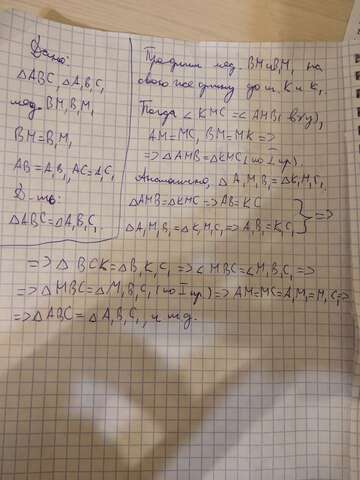 Дано:
△ABC, △A₁B₁C₁
мед. BM, B₁M₁
BM=B₁M₁
AB=A₁B₁, AC=A₁C₁
Д-ть:
△ABC=△A₁B₁C₁.
Продлим мед. BM и B₁M₁ на
свою же длину до т. K и K₁.
Тогда ∠KMC=∠AMB(в/у),
AM=MC, BM=MK=>
=>△AMB=△KMC(по I пр.).
Аналогично, △A₁M₁B₁=△K₁M₁C₁.
△AMB=△KMC=>AB=KC
△A₁M₁B₁=△K₁M₁C₁=>A₁B₁=K₁C₁ } =>
=>△BCK=△B₁K₁C₁=>∠MBC=∠M₁B₁C₁=>
=>△MBC=△M₁B₁C₁(по I пр.)=>AM=MC=A₁M₁=M₁C₁=>
=>△ABC=△A₁B₁C₁, ч.т.д.